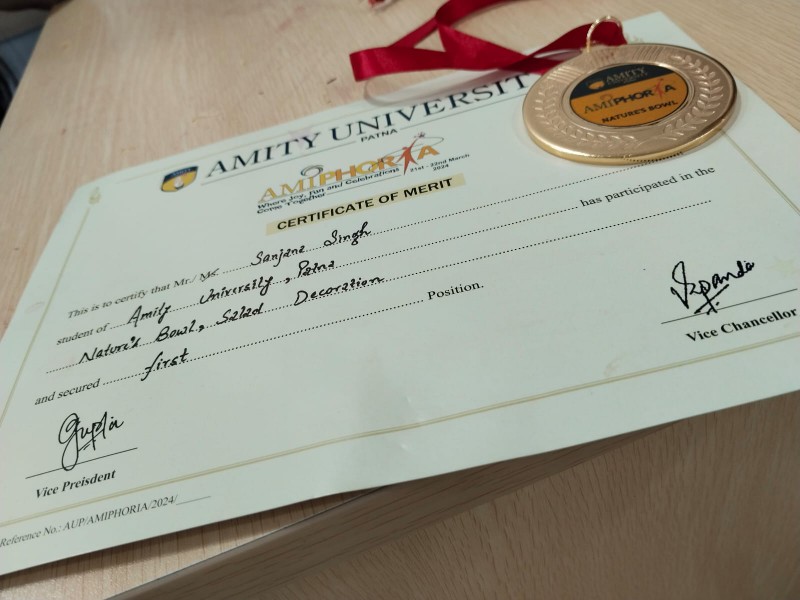 AMITY UNIVERSITY
PATNA
AMIPHORIA
Where Joy, Fun and Celebrations
Come Together
21st - 22nd March
2024
CERTIFICATE OF MERIT
This is to certify that Mr./ Ms. Sanjana Singh
student of Amity University, Patna has participated in the
Nature's Bowl, Salad Decoration
and secured first Position.
Gupta
Vice Preisdent
Vice Chancellor
Reference No.: AUP/AMIPHORIA/2024/
AMITY
AMIPHORIA
NATURE'S BOWL